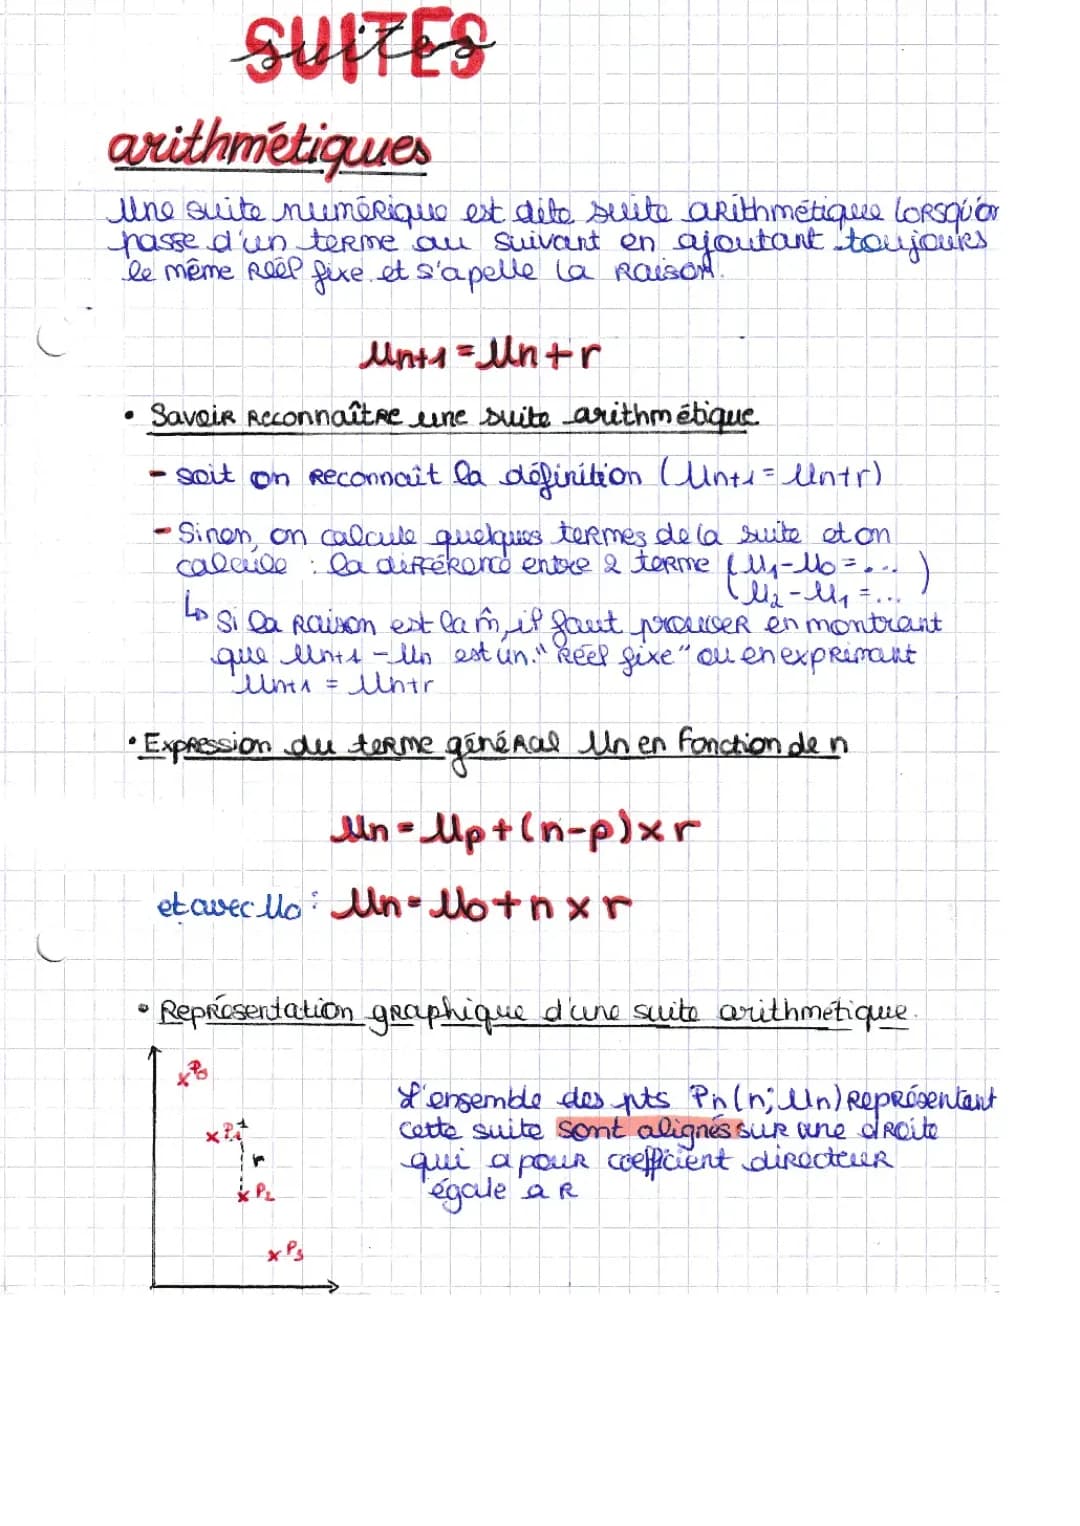 SUITES
suites
arithmétiques
Une suite numérique est dite suite arithmétique lorsqu'on
passe d'un terme au suivant en ajoutant toujours
le même réel fixe et s'apelle la raison.
Un+1 = Un + r
• Savoir reconnaître une suite arithmétique
- soit on reconnait la définition (Un+1 = Un+r)
- Sinon, on calcule quelques termes de la suite et on
calcule : la différence entre 2 terme (U1-U0 = ...
U2-U1 = ...)
↳ Si la raison est la m̂, il faut prouver en montrant
que Un+1 - Un est un "réel fixe" ou en exprimant
Un+1 = Un+r
• Expression du terme général Un en fonction de n
Un = Up + (n-p) x r
et avec U0 : Un = U0 + n x r
• Représentation graphique d'une suite arithmétique.
x P0
x P1
r
x P2
x P3
L'ensemble des pts Pn (n; Un) représentant
cette suite sont alignés sur une droite
qui a pour coefficient directeur
égale a r